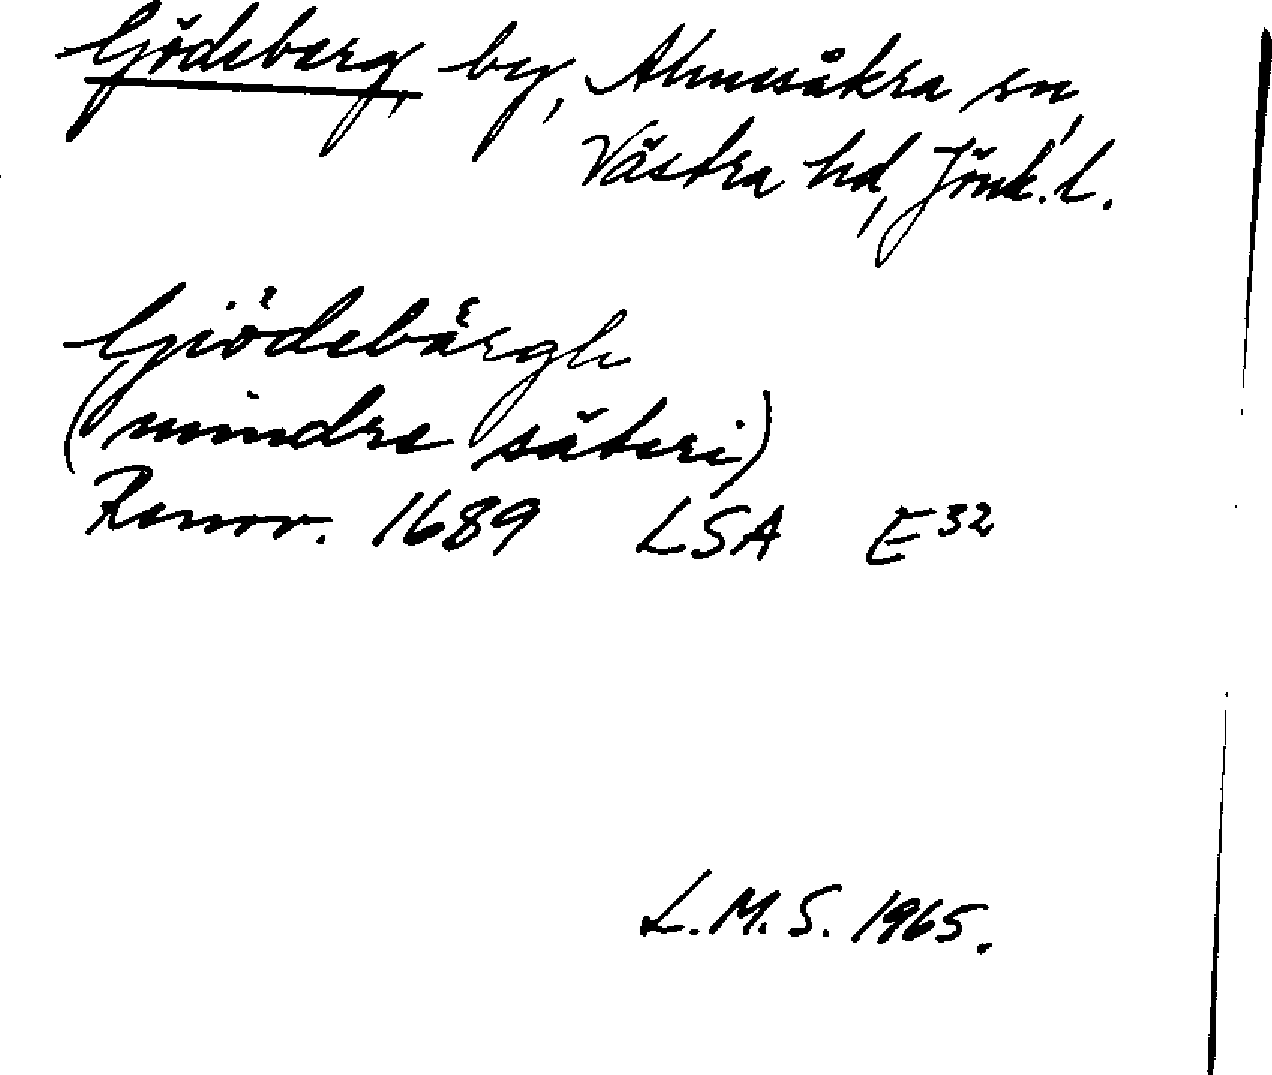 Gödeberg, by, Almesåkra sn,
Västra hd, Jönk. l.
Giödebärgh
(mindre säteri)
Renov. 1689 LSA E 32
L.M.S. 1965.